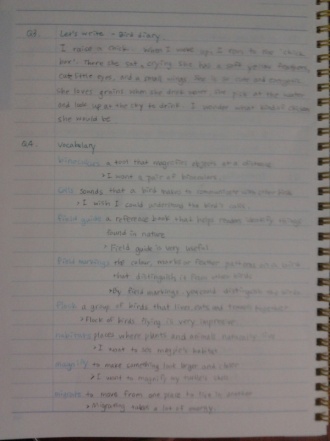 Q1. Let's write - Bird diary.
I raise a chick. When I woke up, I came to the chick
box. There she sat crying. She has a soft yellow feathers,
cute little eyes, and a small wings. She is so cute and energetic.
She loves grains when she drink water. She pick at the water
and look up at the sky to drink. I wonder what kind of chicken
she would be.
Q2. Vocabulary
binoculars a tool that magnifies objects at a distance
• I want a pair of binoculars.
calls sounds that a bird makes to communicate with other birds
• I wish I could understand the bird's calls.
field guide a reference book that helps readers identify things
found in nature
• Field guide is very useful.
field markings the colour, marks or feather patterns on a bird
that distinguish it from other birds
• By field markings, you can distinguish the birds
flock a group of birds that lives, eats and travels together
• Flock of birds flying is very impressive.
habitats places where plants and animals naturally live
• I want to see magpie's habitat.
magnify to make something look larger and closer
• I want to magnify my
migrate to move from one place to live in another
• Migrating takes a lot of energy.